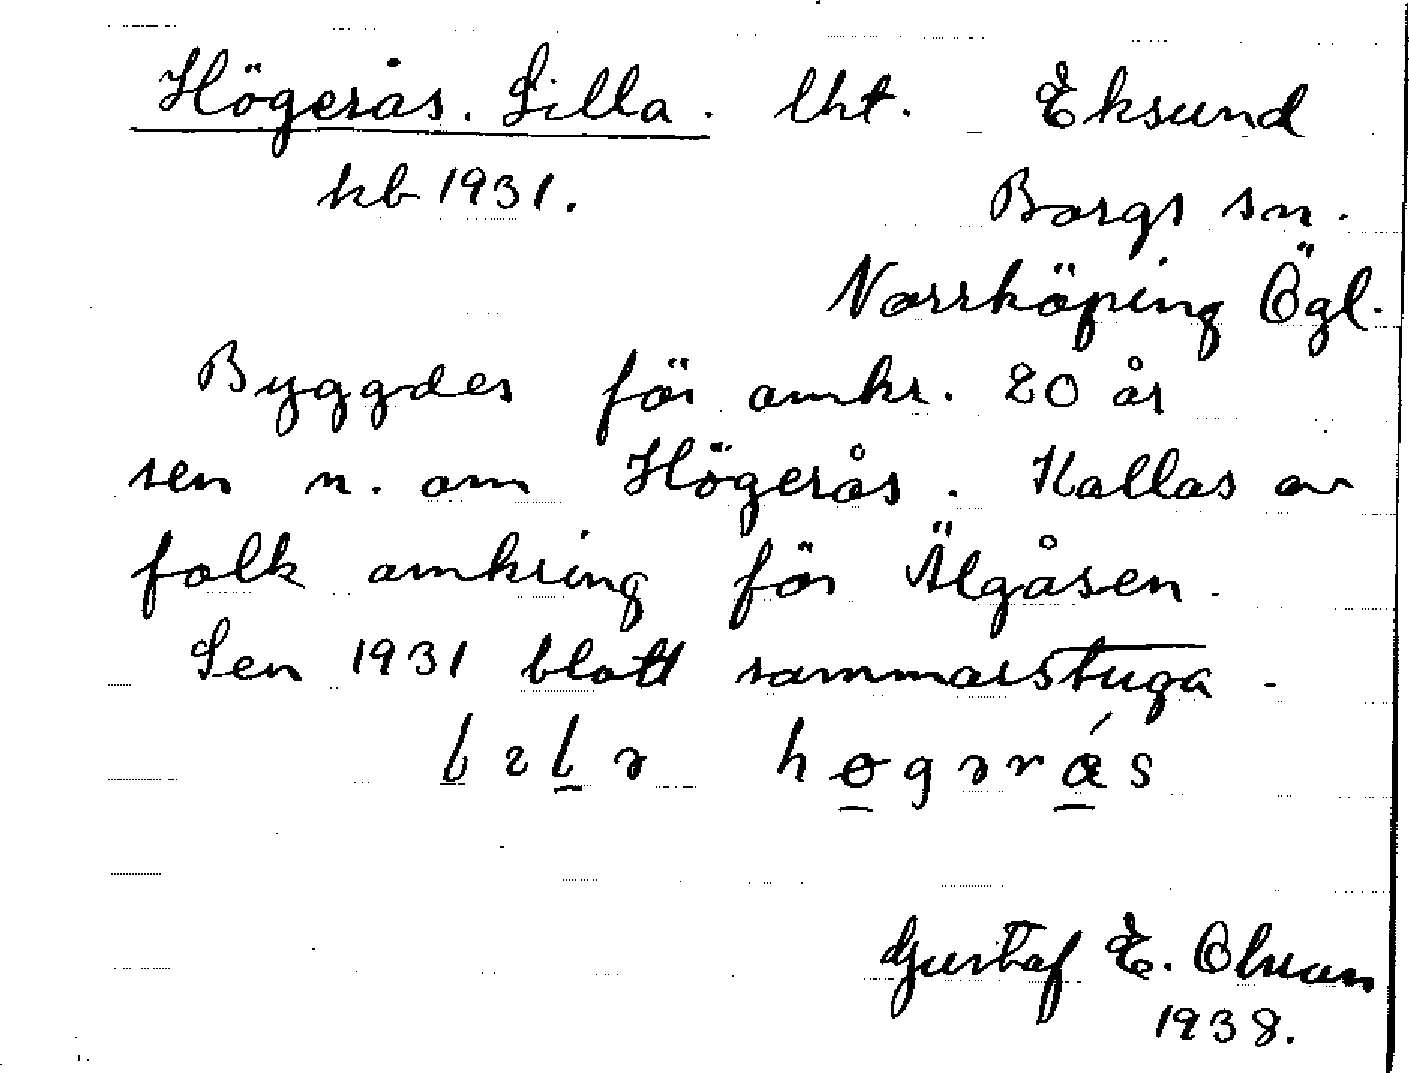 Högerås. Lilla. lht. Eksund
kb 1931.
Borgs sn.
Norrköping Ögl.
Byggdes för omkr. 20 år
sen n. om Högerås. Kallas av
folk omkring för Älgåsen.
Sen 1931 blott sommarstuga.
Gustaf E. Olson
1938.